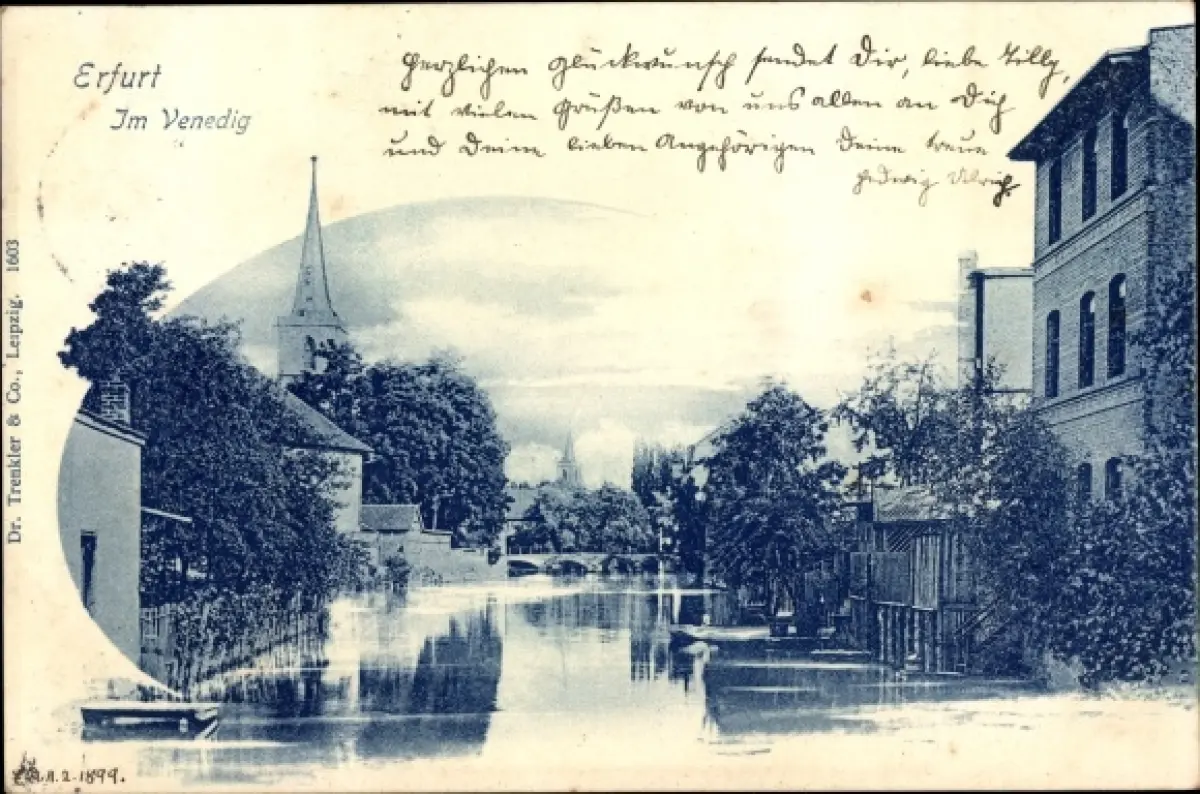 Erfurt
Im Venedig
Herzlichen Glückwunsch sendet Dir, liebe Tilly,
mit vielen Grüßen von uns allen an Dich
und Deine lieben Angehörigen Deine treue
Hedwig Ulrich
Dr. Trenkler & Co., Leipzig. 1603
11.2.1899.